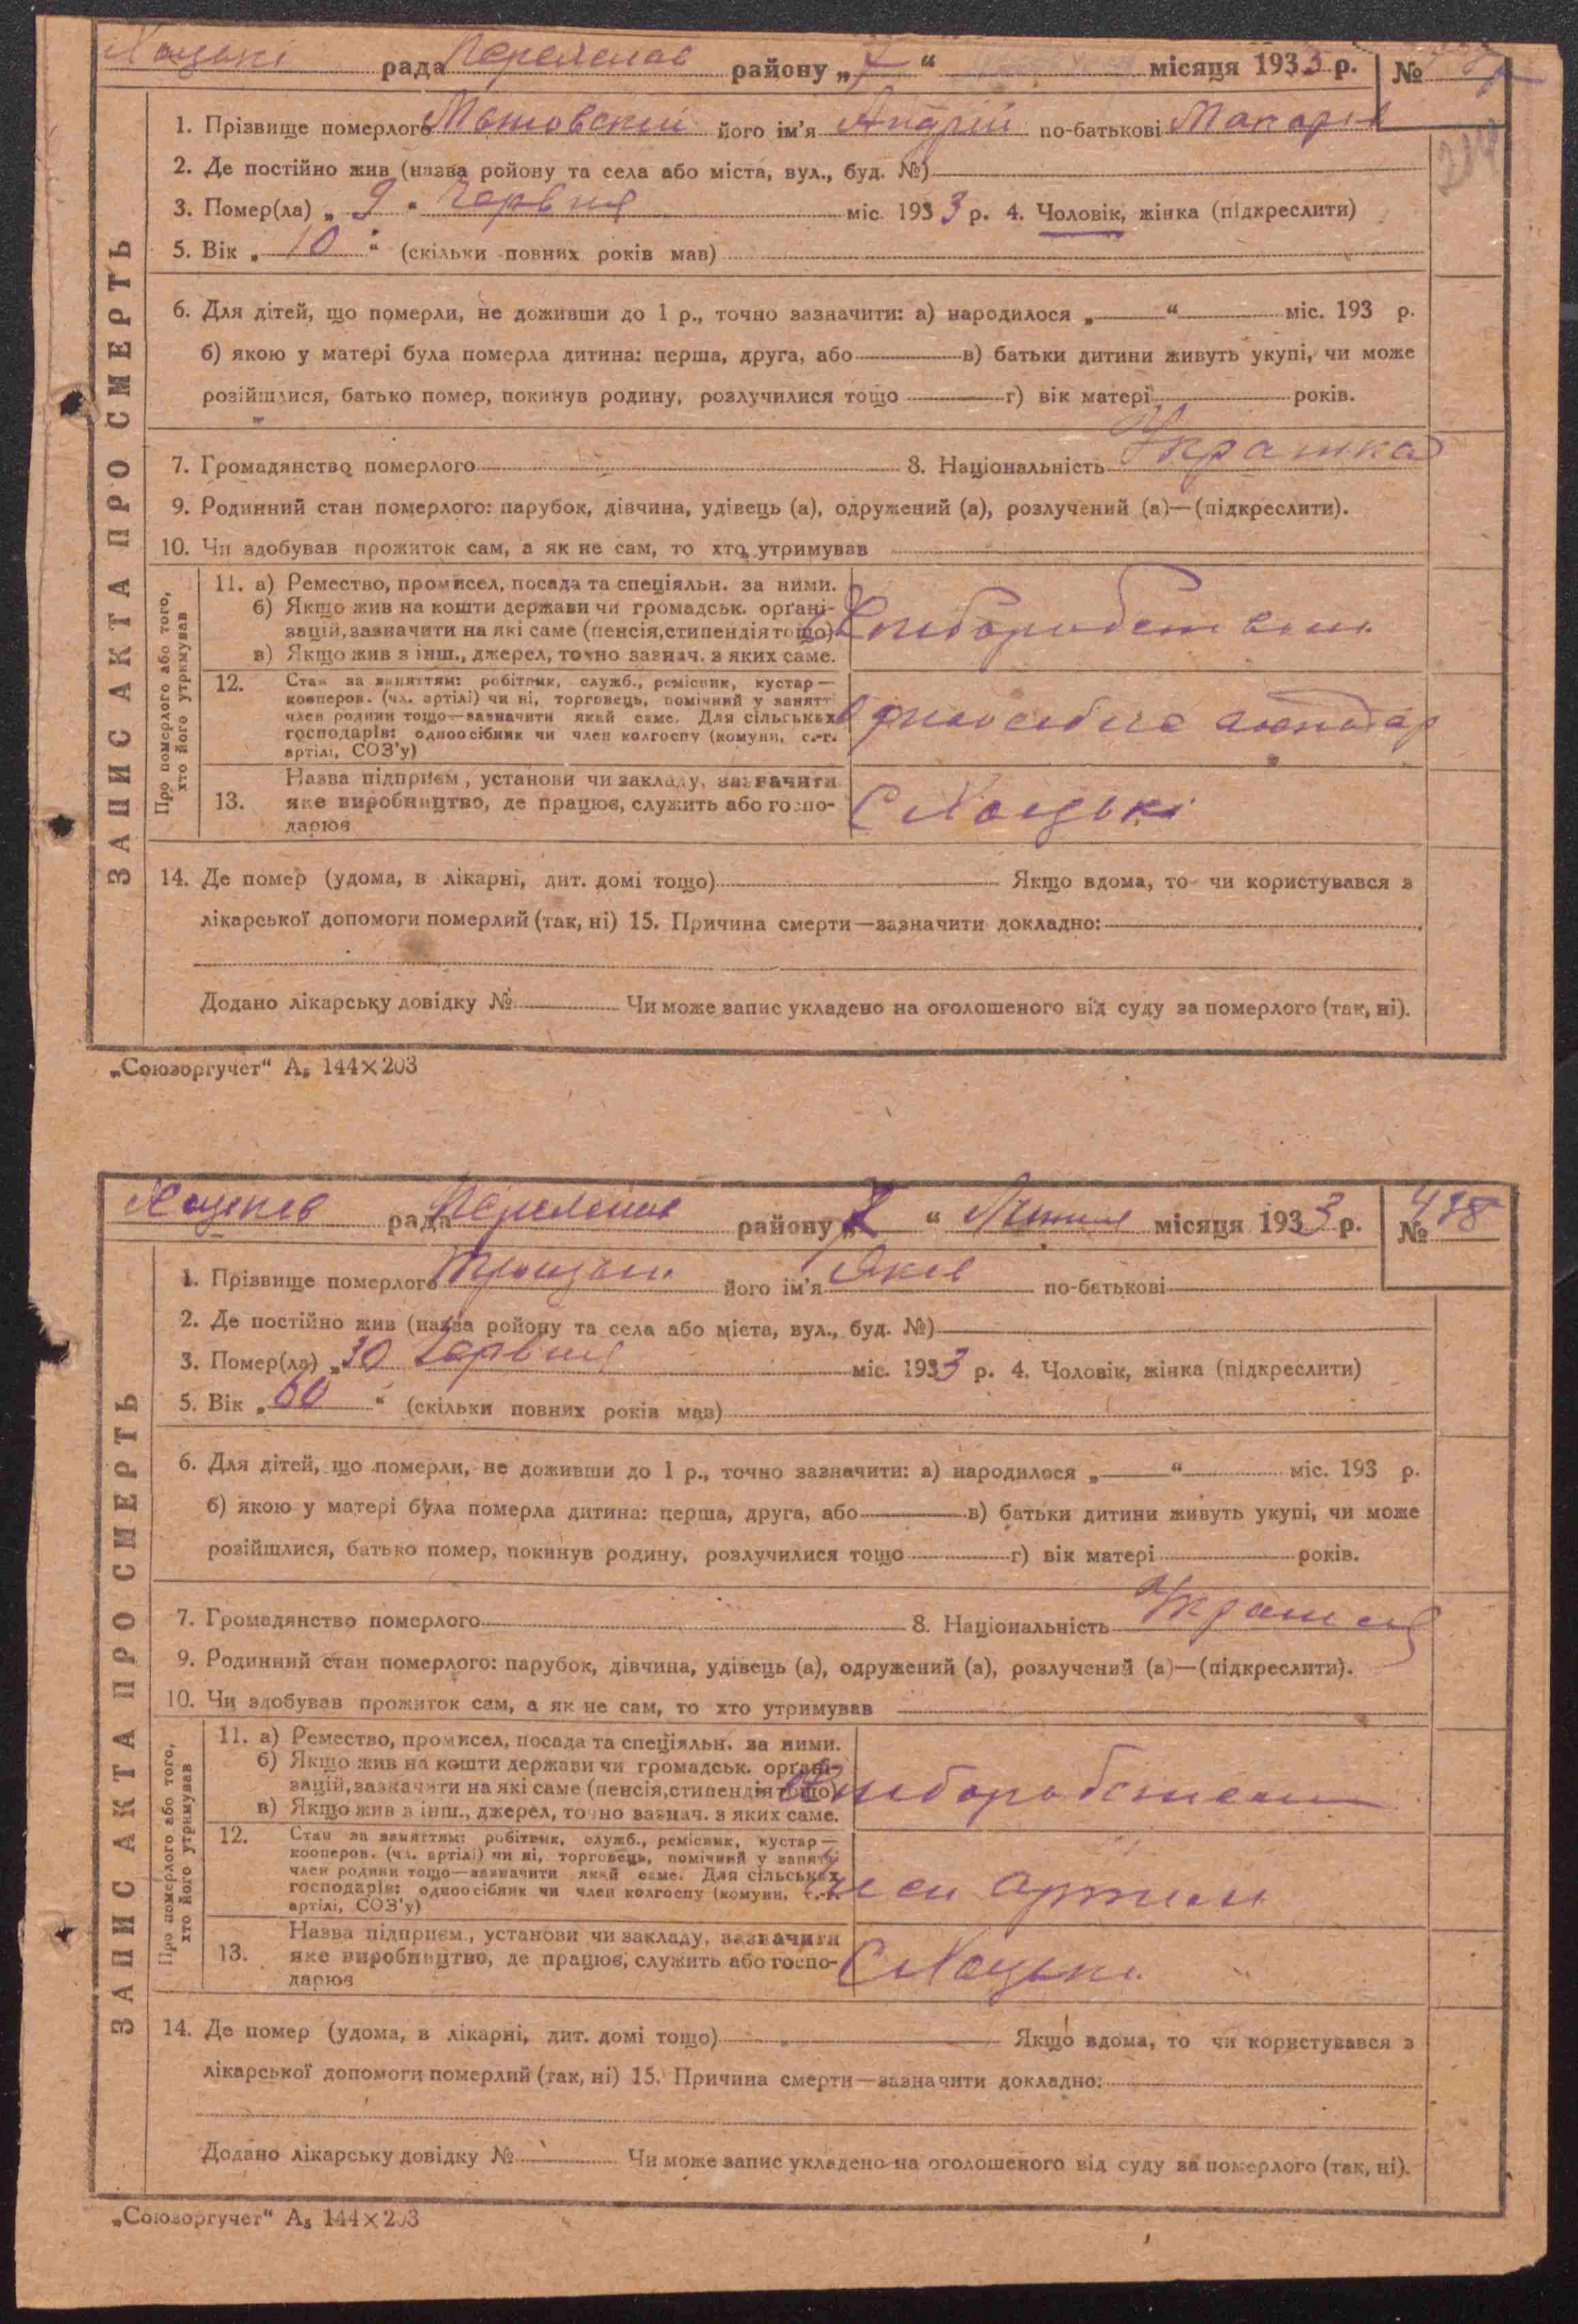 Хоцьки рада Переяслав району „7“ місяця 1933 р. №
1. Прізвище померлого його ім'я Андрій по-батькові Макарів
2. Де постійно жив (назва ройону та села або міста, вул., буд. №)
3. Помер(ла) „ 9 “ Червня міс. 1933 р. 4. Чоловік, жінка (підкреслити)
5. Вік „ 10 “ (скільки повних років мав)
6. Для дітей, що померли, не доживши до 1 р., точно зазначити: а) народилося „ “ міс. 193 р.
б) якою у матері була померла дитина: перша, друга, або в) батьки дитини живуть укупі, чи може
розійшлися, батько помер, покинув родину, розлучилися тощо г) вік матері років.
7. Громадянство померлого 8. Національність
9. Родинний стан померлого: парубок, дівчина, удівець (а), одружений (а), розлучений (а)—(підкреслити).
10. Чи здобував прожиток сам, а як не сам, то хто утримував
ЗАПИС АКТА ПРО СМЕРТЬ
Про померлого або того,
хто його утримував
11. а) Ремество, промисел, посада та спеціяльн. за ними.
б) Якщо жив на кошти держави чи громадськ. орґані-
зацій, зазначити на які саме (пенсія, стипендія тощо)
в) Якщо жив з інш., джерел, точно зазнач. з яких саме.
12. Стан за заняттям: робітник, служб., ремісник, кустар—
кооперов. (чл. артілі) чи ні, торговець, помічний у занятті
член родини тощо—зазначити який саме. Для сільських
господарів: одноосібник чи член колгоспу (комуни, с.-г.
артілі, СОЗ'у)
13. Назва підприєм., установи чи закладу, зазначити
яке виробництво, де працює, служить або госпо-
дарює
С Хоцьки
14. Де помер (удома, в лікарні, дит. домі тощо) Якщо вдома, то чи користувався з
лікарської допомоги померлий (так, ні) 15. Причина смерти—зазначити докладно:
Додано лікарську довідку № Чи може запис укладено на оголошеного від суду за померлого (так, ні).
„Союзоргучет“ А₅ 144×203
рада Переяслав району „7“ Липня місяця 1933 р. № 478
1. Прізвище померлого його ім'я Яків по-батькові
2. Де постійно жив (назва ройону та села або міста, вул., буд. №)
3. Помер(ла) „30 Червня міс. 1933 р. 4. Чоловік, жінка (підкреслити)
5. Вік „ 60 “ (скільки повних років мав)
6. Для дітей, що померли, не доживши до 1 р., точно зазначити: а) народилося „ “ міс. 193 р.
б) якою у матері була померла дитина: перша, друга, або в) батьки дитини живуть укупі, чи може
розійшлися, батько помер, покинув родину, розлучилися тощо г) вік матері років.
7. Громадянство померлого 8. Національність
9. Родинний стан померлого: парубок, дівчина, удівець (а), одружений (а), розлучений (а)—(підкреслити).
10. Чи здобував прожиток сам, а як не сам, то хто утримував
ЗАПИС АКТА ПРО СМЕРТЬ
Про померлого або того,
хто його утримував
11. а) Ремество, промисел, посада та спеціяльн. за ними.
б) Якщо жив на кошти держави чи громадськ. орґані-
зацій, зазначити на які саме (пенсія, стипендія тощо)
в) Якщо жив з інш., джерел, точно зазнач. з яких саме.
12. Стан за заняттям: робітник, служб., ремісник, кустар—
кооперов. (чл. артілі) чи ні, торговець, помічний у занятті
член родини тощо—зазначити який саме. Для сільських
господарів: одноосібник чи член колгоспу (комуни, с.-г.
артілі, СОЗ'у)
13. Назва підприєм., установи чи закладу, зазначити
яке виробництво, де працює, служить або госпо-
дарює
С Хоцьки
14. Де помер (удома, в лікарні, дит. домі тощо) Якщо вдома, то чи користувався з
лікарської допомоги померлий (так, ні) 15. Причина смерти—зазначити докладно:
Додано лікарську довідку № Чи може запис укладено на оголошеного від суду за померлого (так, ні).
„Союзоргучет“ А₅ 144×203